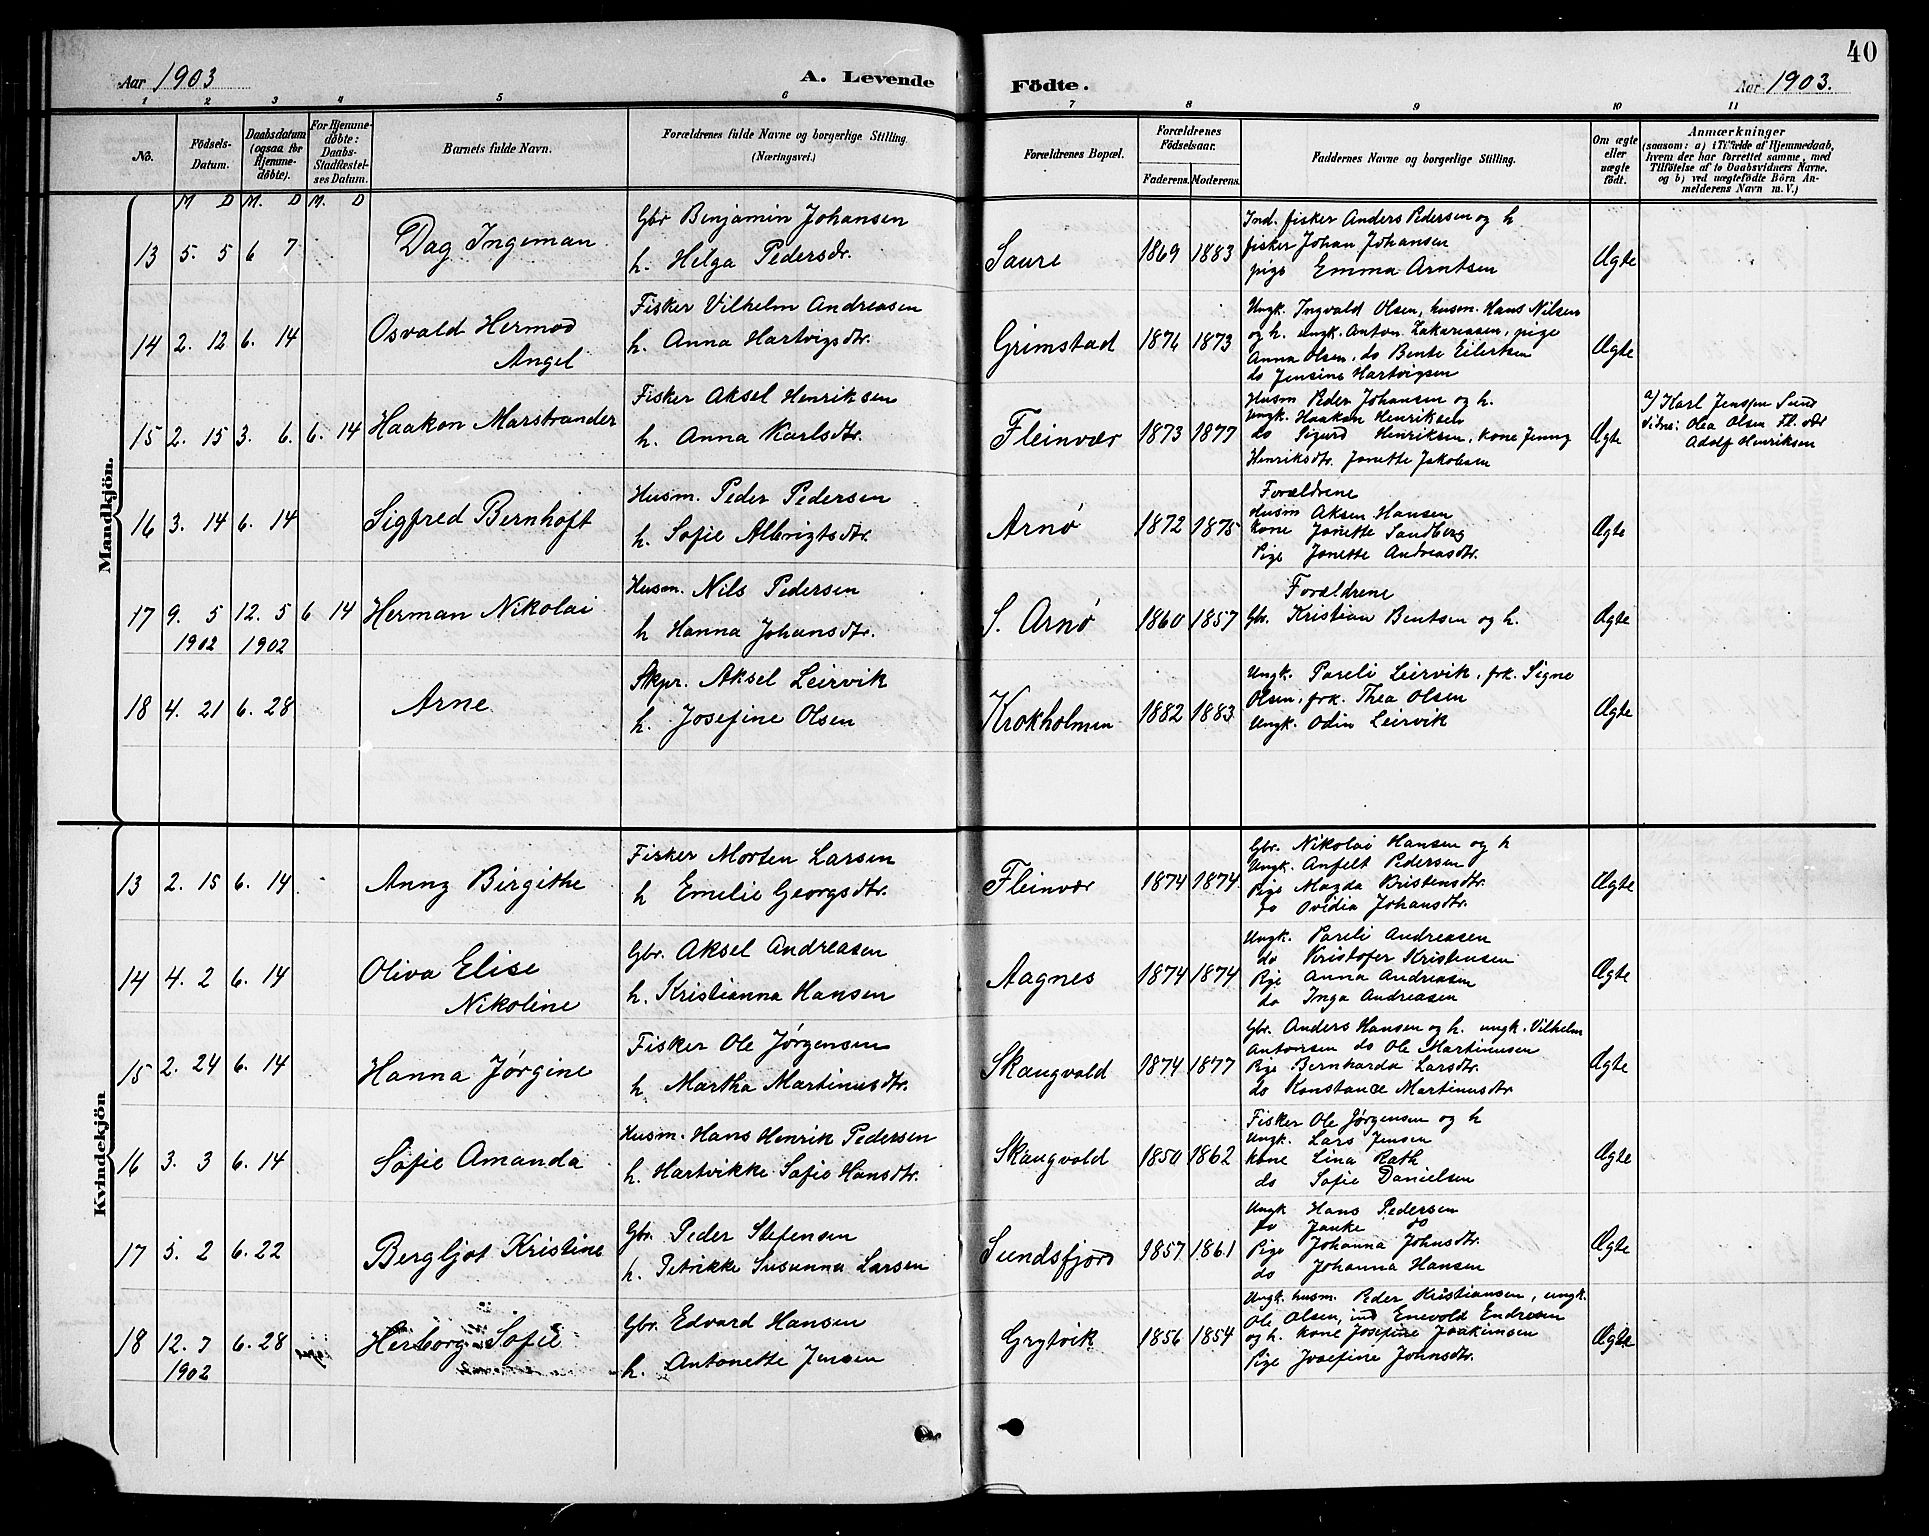 40
Aar 1903
A. Levende
Födte.
Aar 1903.
1 2 3 4 5 6 7 8 9 10 11
No.
Födsels-
Datum.
Daabsdatum
(ogsaa for
Hjemme-
döbte).
For Hjemme-
döbte:
Daabs-
Stadfæstel-
ses Datum.
Barnets fulde Navn.
Forældrenes fulde Navne og borgerlige Stilling.
(Næringsvei.)
Forældrenes Bopæl.
Forældrenes
Födselsaar.
Faderens. Moderens.
Faddernes Navne og borgerlige Stilling.
Om ægte
eller
uægte
født.
Anmærkninger
(saasom: a) i Tilfælde af Hjemmedaab,
hvem der har forrettet samme, med
Tilföielse af to Daabsvidners Navne,
og b) ved uægtefödte Börn An-
melderens Navn m. V.)
M D M. D M. D
Mandkjön.
13 5. 5 6 7 Dag Ingeman
Gbr Benjamin Johansen
h. Helga Pedersdr.
Saure 1869 1883
Ind. fisker Anders Pedersen og h
fisker Johan Johansen
pige Emma Arntsen
Ægte
14 2. 12 6. 14 Osvald Hermod
Angel
Fisker Vilhelm Andreasen
h. Anna Hartvigsdtr.
Grimstad 1876 1873
Ungk. Ingvald Olsen, husm. Hans Nilsen
og h. ungk. Anton Zakariassen, pige
Anna Olsen, do Bente Eilertsen
do Jensine Hartvigsen
Ægte
15 2. 15 3. 6. 6. 14 Haakon Marstrander
Fisker Aksel Henriksen
h. Anna Karlsdtr.
Fleinvær 1873 1877
Husm Peder Johansen og h.
Ungk. Haakon Henriksen
do Sigurd Henriksen, kone Jenny
Henriksdtr. Janette Jakobsen
Ægte
a) Karl Jenssen Sund
vidne: Olea Olsen Fl. vær
Adolf Henriksen
16 3. 14 6. 14 Sigfred Bernhoft
Husm. Peder Pedersen
h. Sofie Albrigtsdtr.
Arnø 1872 1875
Forældrene
Husm Aksen Hansen
kone Janette Sandberg
Pige Janette Andreasdtr.
Ægte
17 9. 5 12. 5 6 14 Herman Nikolai
1902 1902
Husm. Nils Pedersen
h Hanna Johansdtr.
S. Arnø 1860 1857
Forældrene
Gbr. Kristian Bentsen og h.
Ægte
18 4. 21 6. 28 Arne
Skpr. Aksel Leirvik
h. Josefine Olsen
Krokholmen 1882 1883
Ungk. Pareli Leirvik, frk. Signe
Olsen, frk. Thea Olsen
Ungk. Odin Leirvik
Ægte
Kvindekjön
13 2. 15 6. 14 Anny Birgithe
Fisker Morten Larsen
h Emelie Georgsdtr.
Fleinvær 1874 1874
Gbr. Nikolai Hansen og h
Ungk. Anfelt Pedersen
Pige Magda Bristensdtr.
do Ovidia Johansdtr.
Ægte
14 4. 2 6. 14 Oliva Elise
Nikoline
Gbr. Aksel Andreasen
h. Kristianna Hansen
Aagnes 1874 1874
Ungk. Pareli Andreasen
do Kristofer Kristensen
Pige Anna Andreasen
do Inga Andreasen
Ægte
15 2. 24 6. 14 Hanna Jørgine
Fisker Ole Jørgensen
h Martha Martinusdtr.
Skaugvold 1874 1877
Gbr. Anders Hansen og h. ungk. Vilhelm
Antonsen do Ole Martinussen
Pige Bernharda Larsdtr.
do Konstance Martinusdtr
Ægte
16 3. 3 6. 14 Sofie Amanda
Husm. Hans Henrik Pedersen
h. Hartvikke Sofie Hansdtr.
Skaugvold 1850 1862
Fisker Ole Jørgensen og h
Ungk. Lars Jensen
kone Lina Rath
do Sofie Danielsen
Ægte
17 5. 2 6. 22 Bergljot Kristine
Gbr. Peder Stefensen
h. Petrikke Susanna Larsen
Sundsfjord 1857 1861
Ungk Hans Pedersen
do Janke do
Pige Johanna Johnsdtr.
do Johanna Hansen
Ægte
18 12. 7 6. 28 Herborg Sofie
1902
Gbr. Edvard Hansen
h. Antonette Jensen
Grytvik 1856 1854
Ungk. husm. Peder Kristiansen, ungk.
Ole Olsen, ind Enevold Endresen
og h. kone Josefine Joakimsen
Pige Josefine Johnsdtr.
Ægte